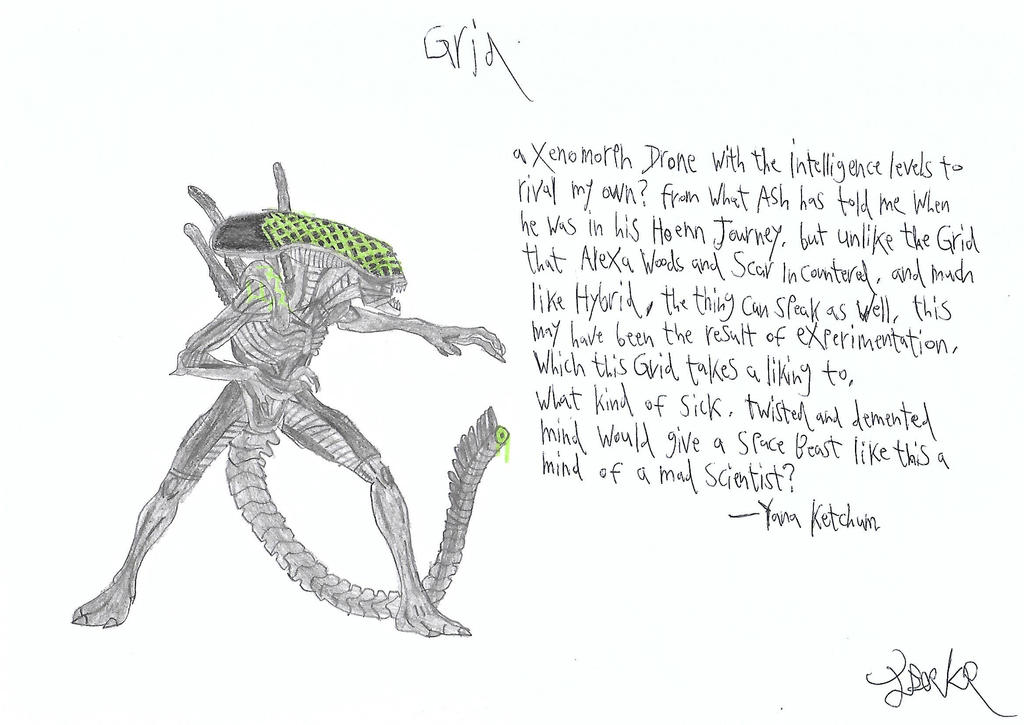 Grid
a Xenomorph Drone with the intelligence levels to
rival my own? from what Ash has told me when
he was in his Hoenn Journey, but unlike the Grid
that Alexa Woods and Scar incountered, and much
like Hybrid, the thing can speak as well, this
may have been the result of experimentation,
which this Grid takes a liking to,
what kind of sick, twisted and demented
mind would give a space beast like this a
mind of a mad scientist?
—Yana Ketchum